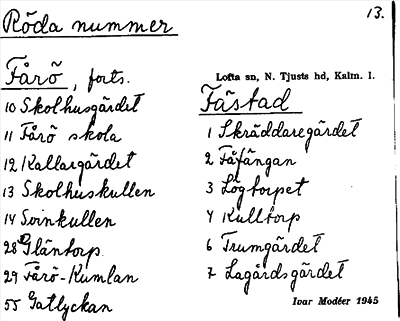 Röda nummer
13.
Fårö, forts.
10 Skolhusgärdet
11 Fårö skola
12 Kallargärdet
13 Skolhuskullen
14 Svinkullen
28 Gläntorp
29 Fårö-Kumlan
55 Gatlyckan
Lofta sn, N. Tjusts hd, Kalm. l.
Fästad
1 Skräddaregärdet
2 Fåfängan
3 Lögtorpet
4 Kulltorp
6 Trumgärdet
7 Lagårdsgärdet
Ivar Modéer 1945